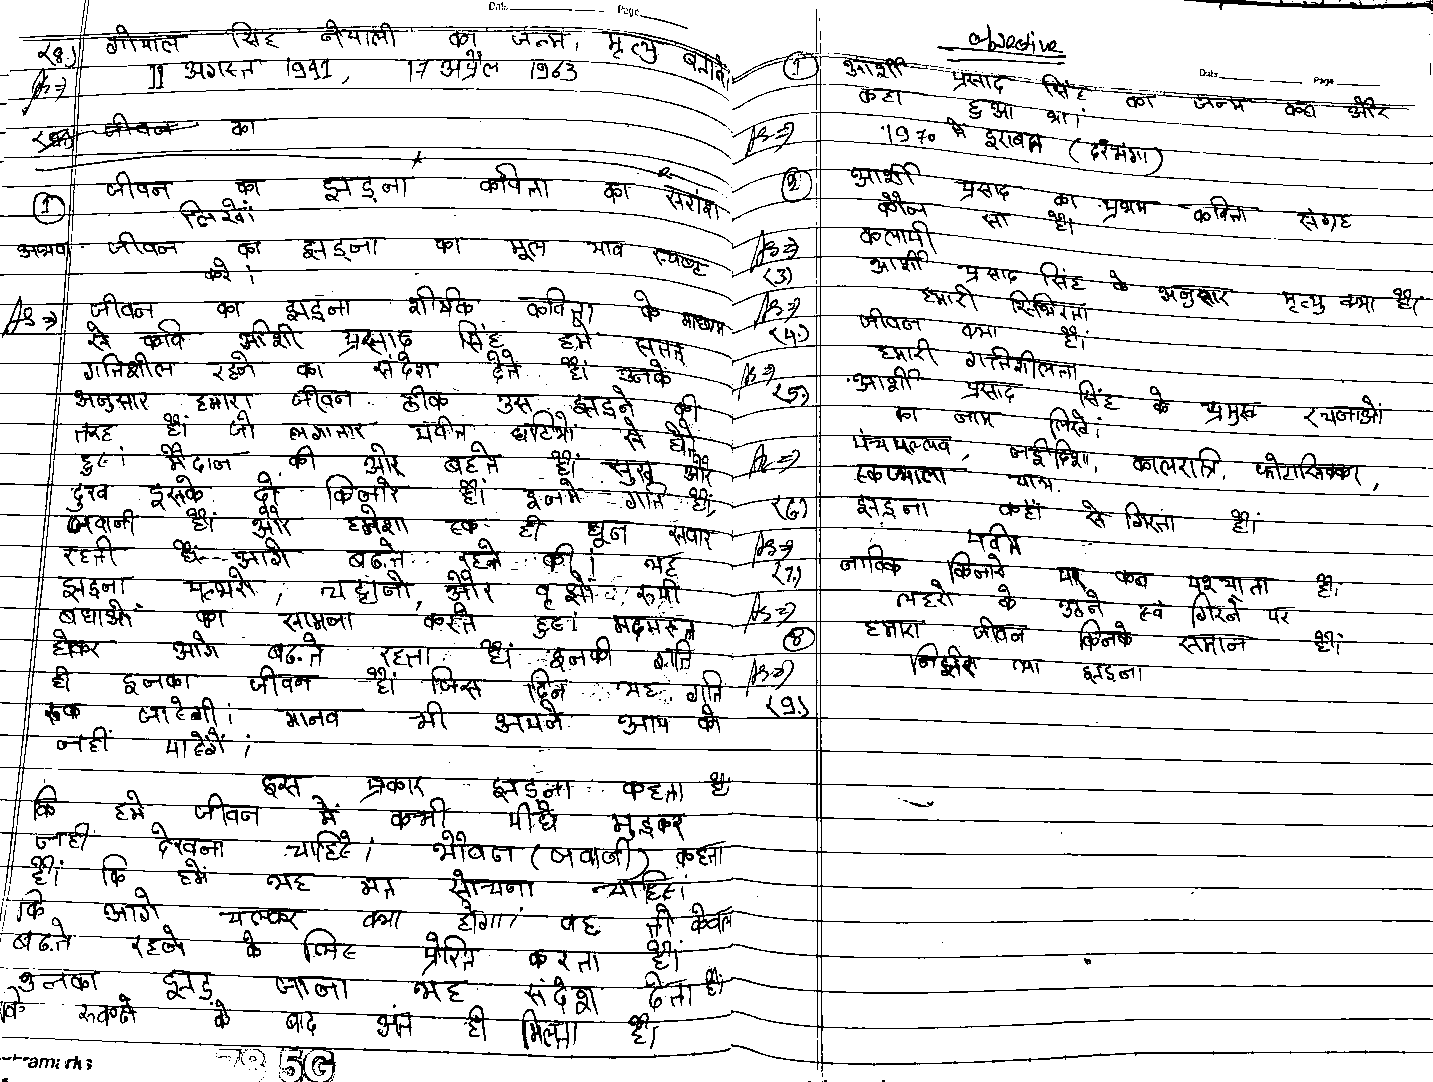 Date Page
(8.) गोपाल सिंह नेपाली का जन्म, मृत्यु बतावें।
Ans⇒ 11 अगस्त 1911, 17 अप्रैल 1963
जीवन का
① जीवन का झड़ना कविता का सरांश
लिखें।
अथवा जीवन का झड़ना का मूल भाव स्पष्ट
करे।
Ans⇒ जीवन का झड़ना शीर्षक कविता के माध्यम
से कवि आरसी प्रसाद सिंह हमें सतत
गतिशील रहने का संदेश देते हैं। उनके
अनुसार हमारा जीवन ठीक उस झड़ने की
तरह हैं। जो लगातार पर्वत घाटिओ से होते
हुए। मैदान की ओर बहते हैं। सुख और
दुख इसके दो किनारे हैं। इनमे गति हैं,
जवानी हैं। और हमेशा एक ही धून सवार
रहती हैं- आगे बढ़ते रहने की। यह
झड़ना पत्थरो, चट्टानो, और वृक्षो रूपी
बधाओं का सामना करते हुए। मदमस्त
होकर आगे बढ़ते रहता हैं। इनकी गति
ही इनका जीवन हैं। जिस दिन यह गति
रूक जाऐगी। मानव भी अपने आप को
नहीं पाऐगें।
इस प्रकार झड़ना कहता है
कि हमे जीवन में कभी पीछे मुड़कर
नही देखना चाहिए। यौवन (जवानी) कहता
हैं। कि हमें यह मत सोचना चाहिए।
कि आगे चलकर क्या होगा। वह तो केवल
बढ़ते रहने के लिए प्रेरित करता हैं।
उनका झड़ जाना यह संदेश देता हैं।
कि रूकने के बाद अंत ही मिलता हैं।
5G
objective
Date Page
① आरसी प्रसाद सिंह का जन्म कब और
कहा हुआ था।
Ans⇒ में इरावत (दरभंगा)
② आरसी प्रसाद का प्रथम कविता संग्रह
कौन सा हैं।
Ans⇒ कलापी
(3) आरसी प्रसाद सिंह के अनुसार मृत्यु क्या हैं।
Ans⇒ हमारी स्थिरता
(4.) जीवन क्या हैं।
Ans⇒ हमारी गतिशीलता
(5.) आरसी प्रसाद सिंह के प्रमुख रचनाओं
का नाम लिखें।
Ans⇒ पंचपल्लव, नई दिशा, कालरात्रि,
एकप्याला चाय.
(6) झड़ना कहाँ से गिरता हैं।
Ans⇒ पर्वत
(7.) नाविक किनारे पर कब पश्चाता हैं।
Ans⇒ लहरो के उठने एवं गिरने पर
⑧ हमारा जीवन किनके समान हैं।
Ans⇒ निर्झर या झड़ना
(9.)